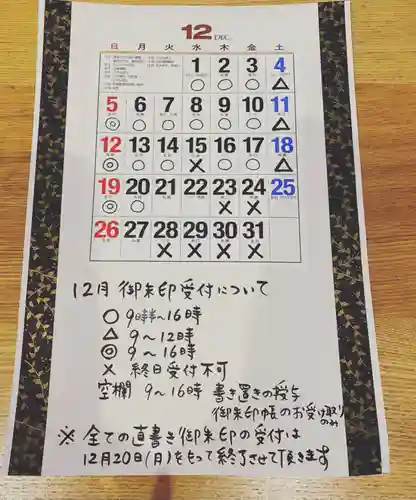 12 DEC.
日 月 火 水 木 金 土
1 2 3 4
○ ○ ○ △
5 6 7 8 9 10 11
◎ ○ ○ ○ ○ ○ △
12 13 14 15 16 17 18
◎ ○ ○ × ○ ○ △
19 20 21 22 23 24 25
◎ ○ × ×
26 27 28 29 30 31
× × × ×
12月 御朱印受付について
○ 9時半~16時
△ 9~12時
◎ 9~16時
× 終日受付不可
空欄 9~16時 書き置きの授与
御朱印帳のお受け取りのみ
※ 全ての直書き御朱印の受付は
12月20日(月)をもって終了させて頂きます